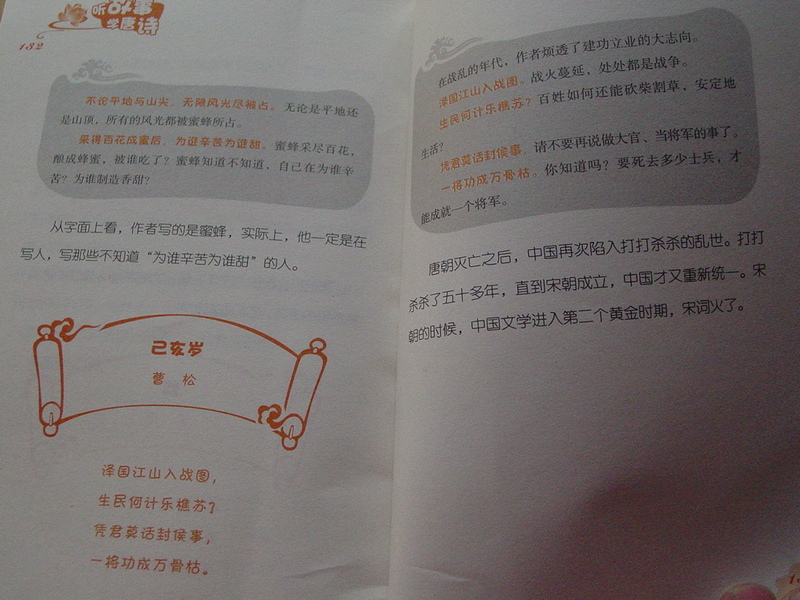 听故事
学唐诗
132
不论平地与山尖，无限风光尽被占。无论是平地还
是山顶，所有的风光都被蜜蜂所占。
采得百花成蜜后，为谁辛苦为谁甜。蜜蜂采尽百花，
酿成蜂蜜，被谁吃了？蜜蜂知道不知道，自己在为谁辛
苦？为谁制造香甜？
从字面上看，作者写的是蜜蜂，实际上，他一定是在
写人，写那些不知道“为谁辛苦为谁甜”的人。
己亥岁
曹 松
泽国江山入战图，
生民何计乐樵苏？
凭君莫话封侯事，
一将功成万骨枯。
在战乱的年代，作者烦透了建功立业的大志向。
泽国江山入战图。战火蔓延，处处都是战争。
生民何计乐樵苏？百姓如何还能砍柴割草，安定地
生活？
凭君莫话封侯事，请不要再说做大官、当将军的事了。
一将功成万骨枯。你知道吗？要死去多少士兵，才
能成就一个将军。
唐朝灭亡之后，中国再次陷入打打杀杀的乱世。打打
杀杀了五十多年，直到宋朝成立，中国才又重新统一。宋
朝的时候，中国文学进入第二个黄金时期，宋词火了。